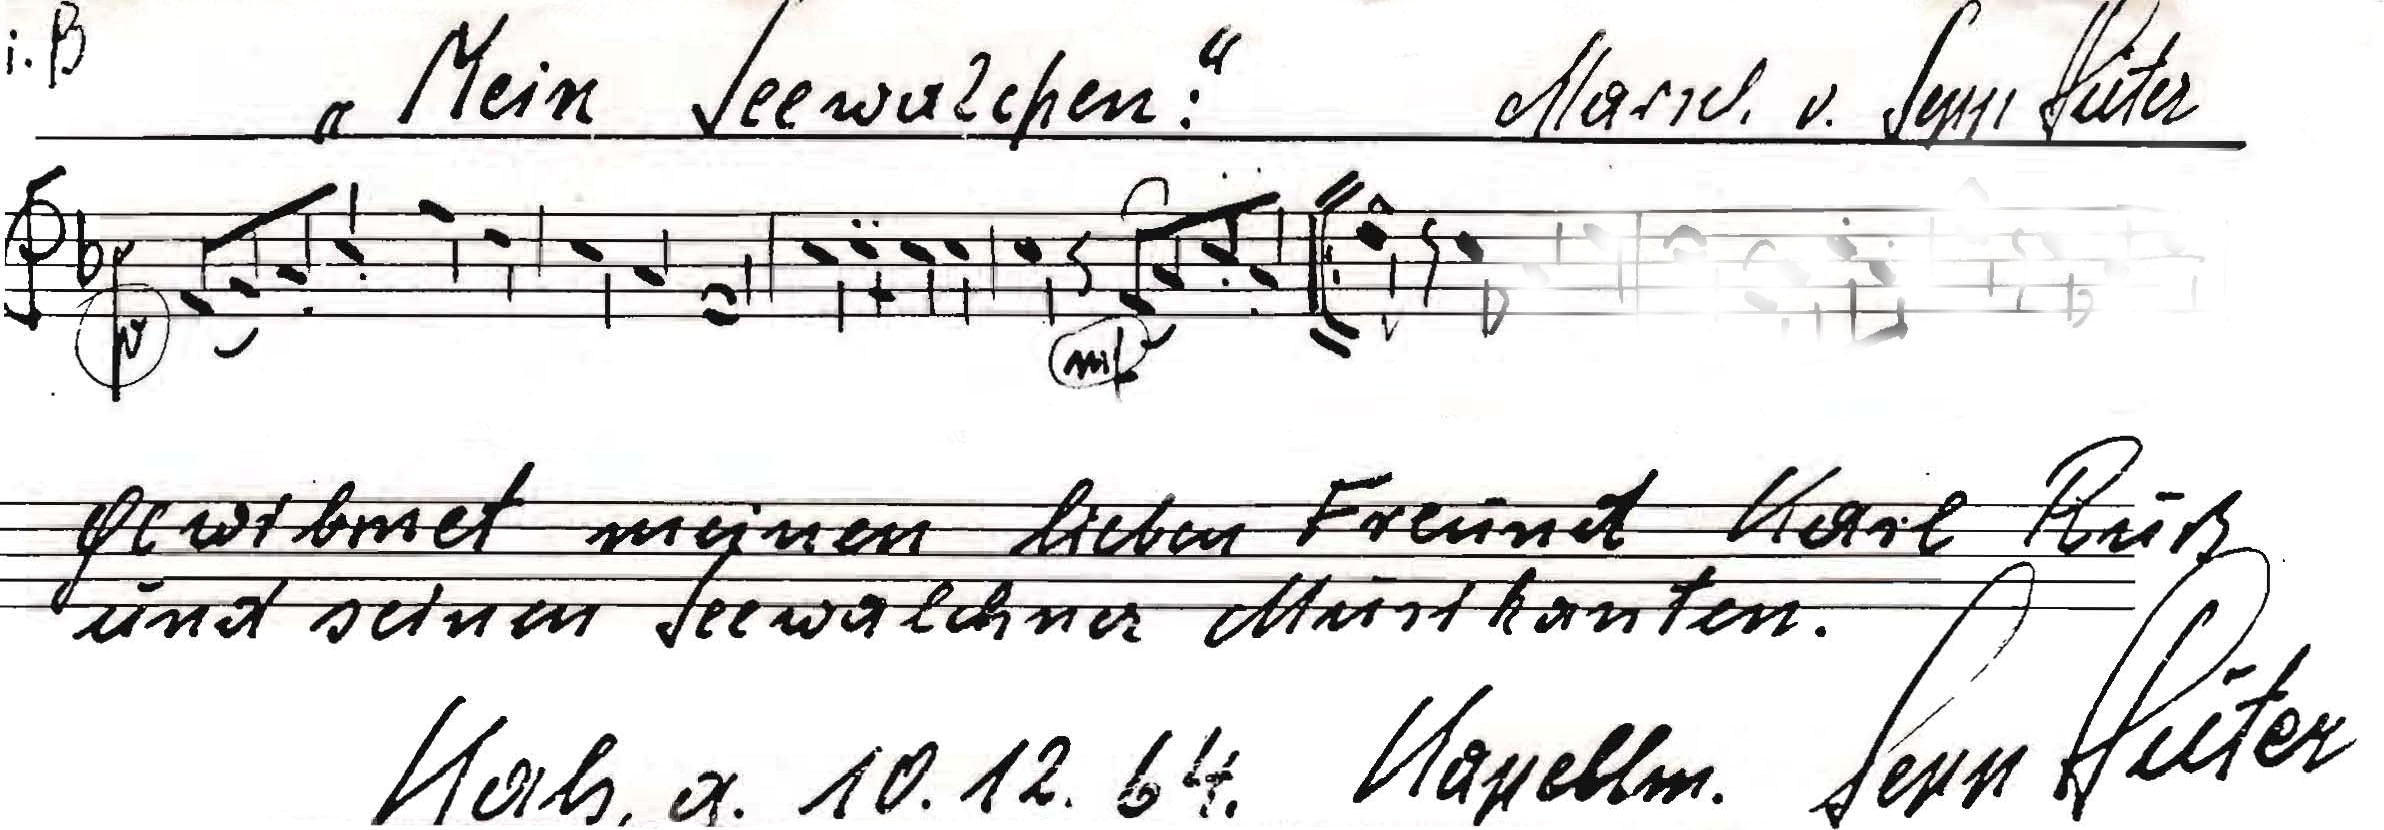 i. B „Mein Seewalchen:“ Marsch v. Sepp
p mf
Gewidmet meinen lieben Freund Karl
und seinen Seewalchner Musikanten.
a. 10. 12. 64. Kapellm. Sepp